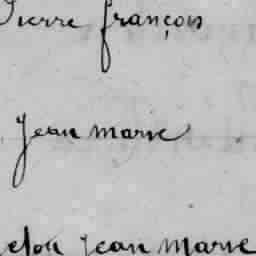 Pierre françois
Jean marie
Jean Marie